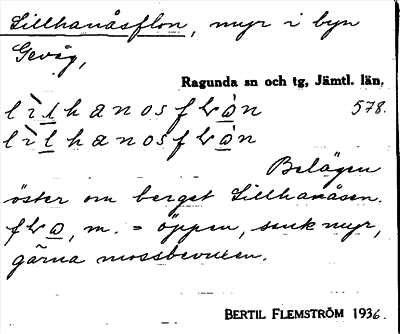 Lillhanåsflon, myr i byn
Gevåg,
Ragunda sn och tg, Jämtl. län.
578.
Belägen
öster om berget Lillhanåsen.
m. = öppen, sank myr,
gärna mossbevuxen.
BERTIL FLEMSTRÖM 1936.